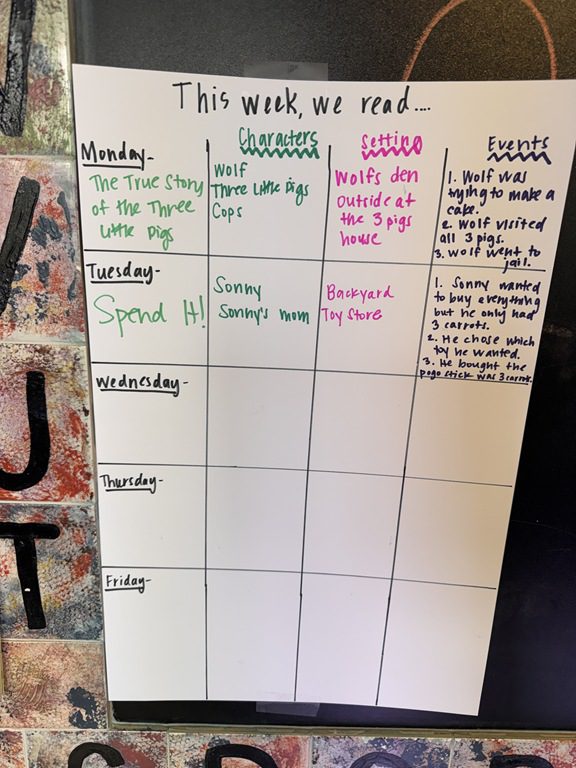 This week, we read....
Characters
Setting
Events
Monday-
The True Story
of the Three
Little Pigs
Wolf
Three Little Pigs
Cops
Wolfs den
outside at
the 3 pigs
house
1. Wolf was
trying to make a
cake.
2. Wolf visited
all 3 pigs.
3. Wolf went to
jail.
Tuesday-
Spend It!
Sonny
Sonny's mom
Backyard
Toy Store
1. Sonny wanted
to buy everything
but he only had
3 carrots.
2. He chose which
toy he wanted.
3. He bought the
pogo stick was 3 carrots.
Wednesday-
Thursday-
Friday-
J
T